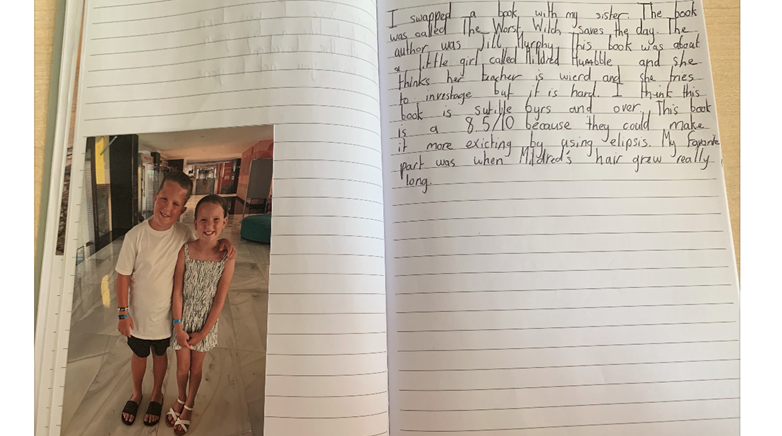 I swapped a book with my sister. The book
was called The Worst Witch saves the day. The
author was Jill Murphy. This book was about
a little girl called Mildred Humble and she
thinks her teacher is wierd and she tries
to investage but it is hard. I think this
book is sutible 6yrs and over. This book
is a 8.5/10 because they could make
it more exicting by using elipsis. My favorite
part was when Mildred's hair grew really
long.